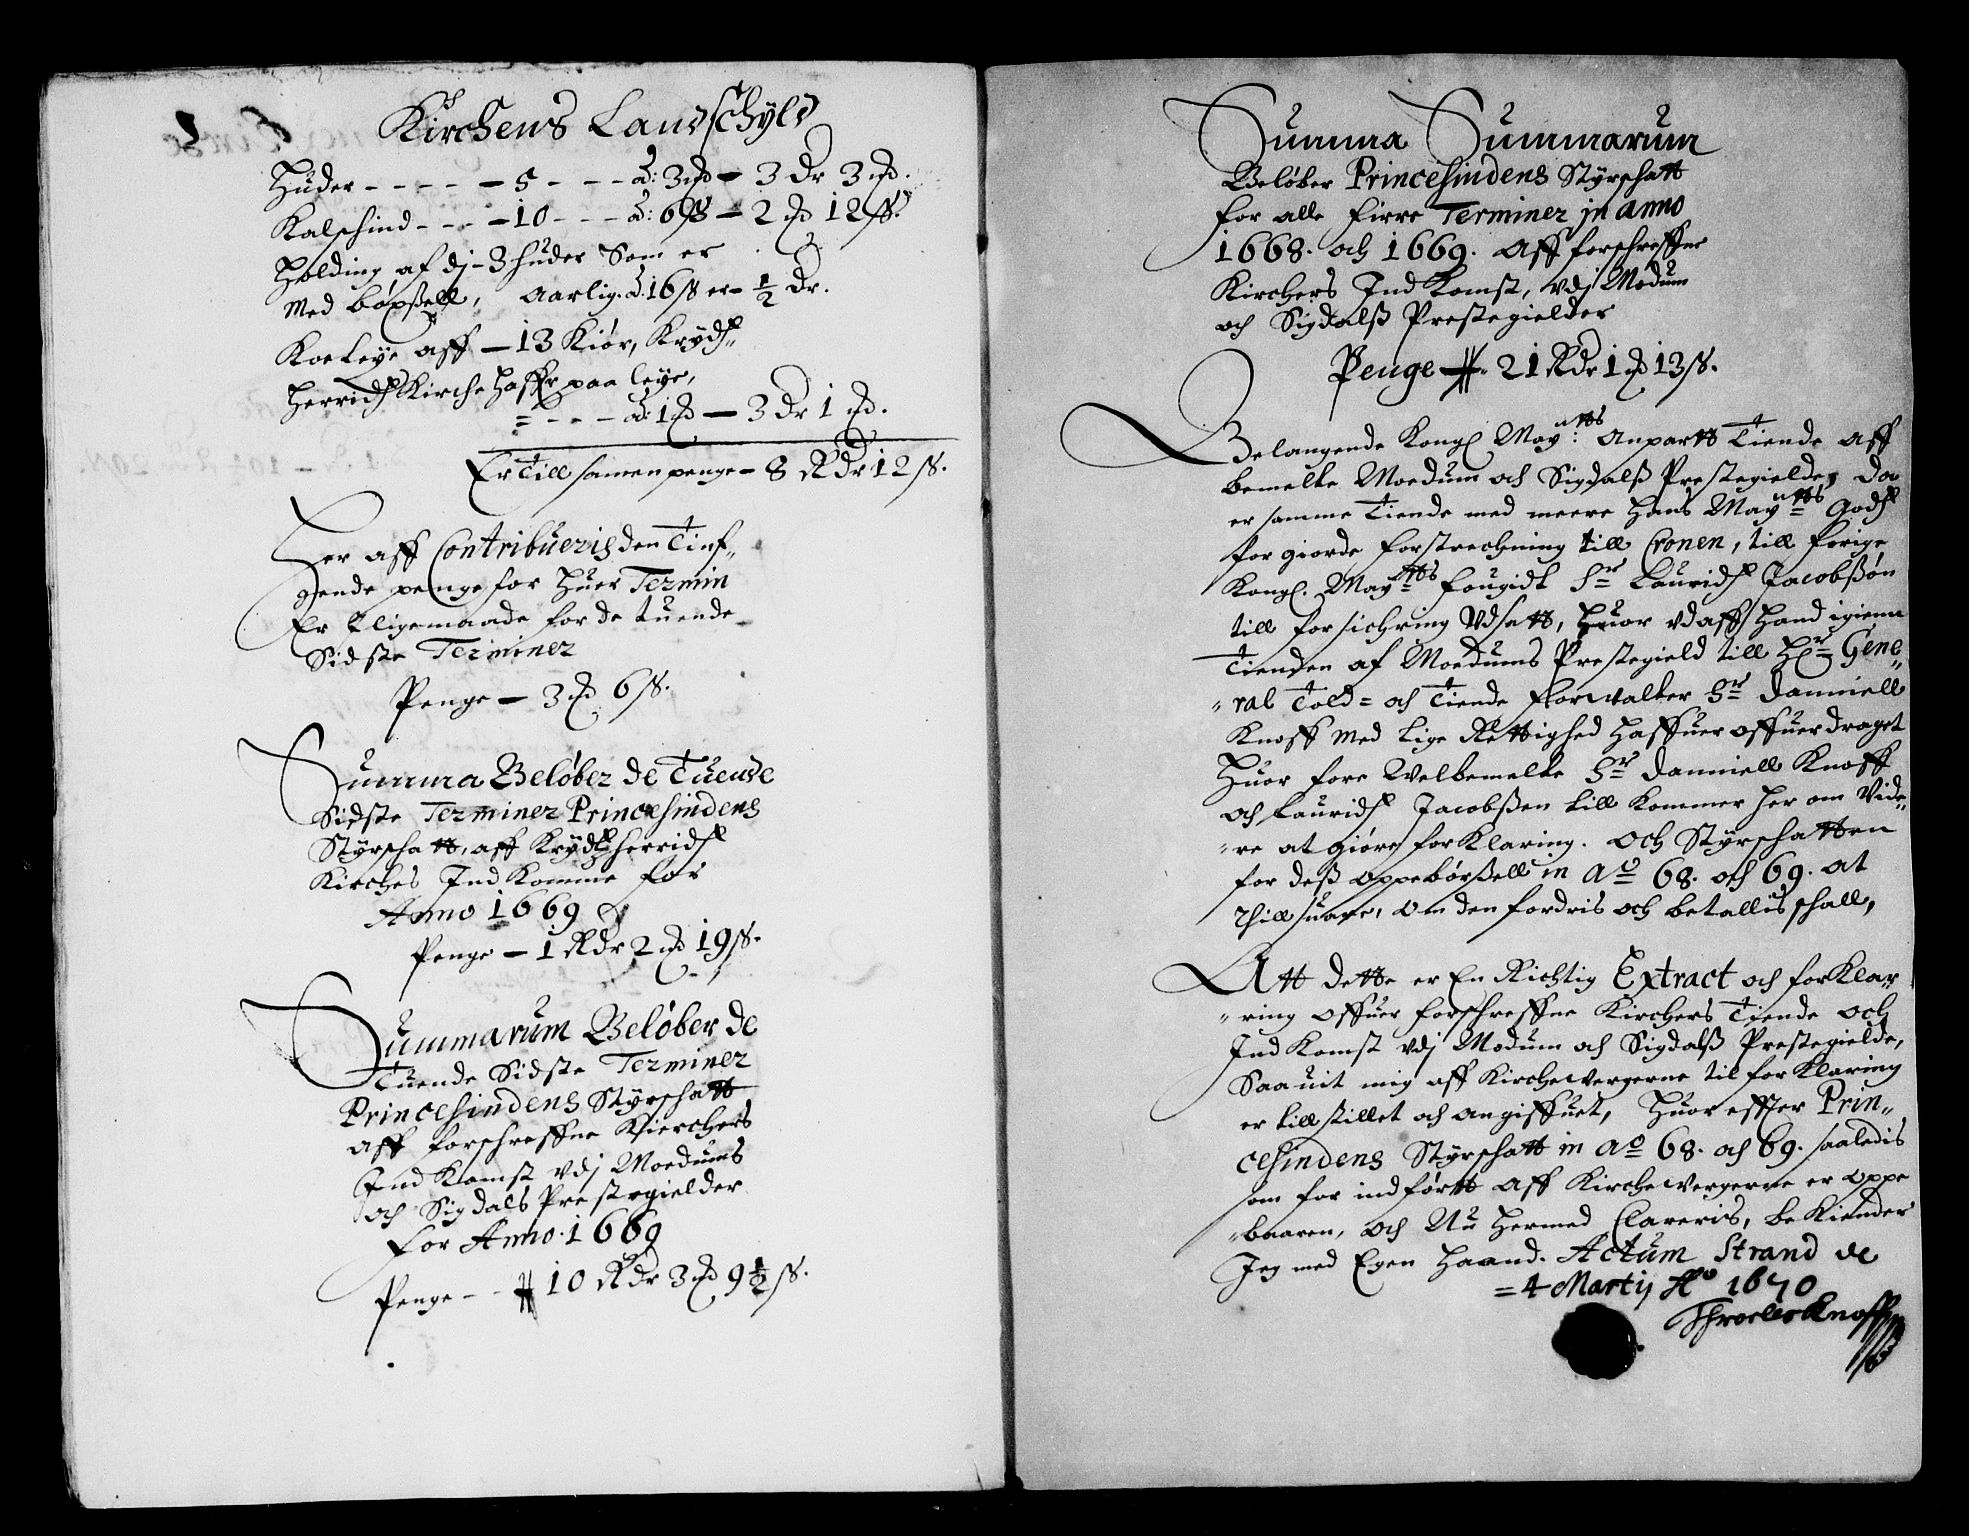 Kirchens Landschyld
Huder - - - - - 5 - - - á: 3 mk - 3 dr 3 mk.
Kalfschind - - - - 10 - - - á: 6 ß - 2 mk 12 ß.
Holding af dj - 3 huder Som er
Med böxßell, Aarlig. á. 16 ß er - ½ dr.
Koe Leye aff - 13 Kiör, Krydß-
herridß Kirche haffr paa leye,
= - - - á: 1 mk - 3 dr 1 mk.
Er Till samen penge - 8 Rdr 12 ß.
Her aff Contribueris den Tinf-
gende penge for huer Termin
Er Lligemaade for de tuende
Sidste Terminer
Penge - 3 mk 6 ß.
Summa Beløber de Tuende
Sidste Terminer Princesindens
Styrschatt, aff Krydtzherridß
Kirches Ind Komme for
Anno 1669
Penge - 1 Rdr 2 mk 19 ß.
Summarum Beløber de
Tuende Sidste Terminer
Princesindens Styrschatt
aff forschreffne Kierchers
Ind Komst vdj Moedums
och Sigdals Prestegielder
for Anno. 1669
Penge - - 10 Rdr 3 mk 9½ ß.
Summa Summarum
Beløber Princesindens Styrschatt
for alle firre Terminer jn anno
1668. och 1669. Aff forschreffne
Kirchers Ind Komst, vdj Modum
och Sigdalß Prestegielder
Penge - 21 Rdr 1 mk 13 ß.
Belangende Kongl Mayts: Anpartt Tiende aff
bemelte Moedum och Sigdalß Prestegielde, da
er samme Tiende med meere hans Mayts Godß
for giorde forstrechning till Cronen, till forige
Kongl. Mayts fougidt Sr Lauridß Jacobßøn
till forsichring Udsatt, huor vdaff hand igienn
Tienden af Moedums Prestegield till Hr Gene„
„ral Told= och Tiende forvalter Sr Danniell
Knoff med Lige Rettighed haffuer offuerdraget
Huor fore Welbemelte Sr Danniell Knoff
och Lauridß Jacobßen till Kommer her om Vide„
„re at giøre forKlaring. Och Styrschatten
for deß oppebørßell in Ao 68. och 69. at
thill suare, om den fordris och betallis schall,
Att dette er En Richtig Extract och forKlar„
„ring offuer forschreffne Kirchers Tiende och
Ind Komst vdj Modum och Sigdalß Prestegielde,
Saauit mig aff Kirchewergerne til forKlaring
er till stillet och angiffuet, Huor effter Prin„
cesindens Styrschatt in Ao 68. och 69. saaledis
som for indførtt aff Kirchewergerne er oppe
„baaren, och Nu hermed Clareris, be Kiender
Jeg med Egen Haand. Actum Strand de
= 4 Martij Ao 1670
Throels Knoff